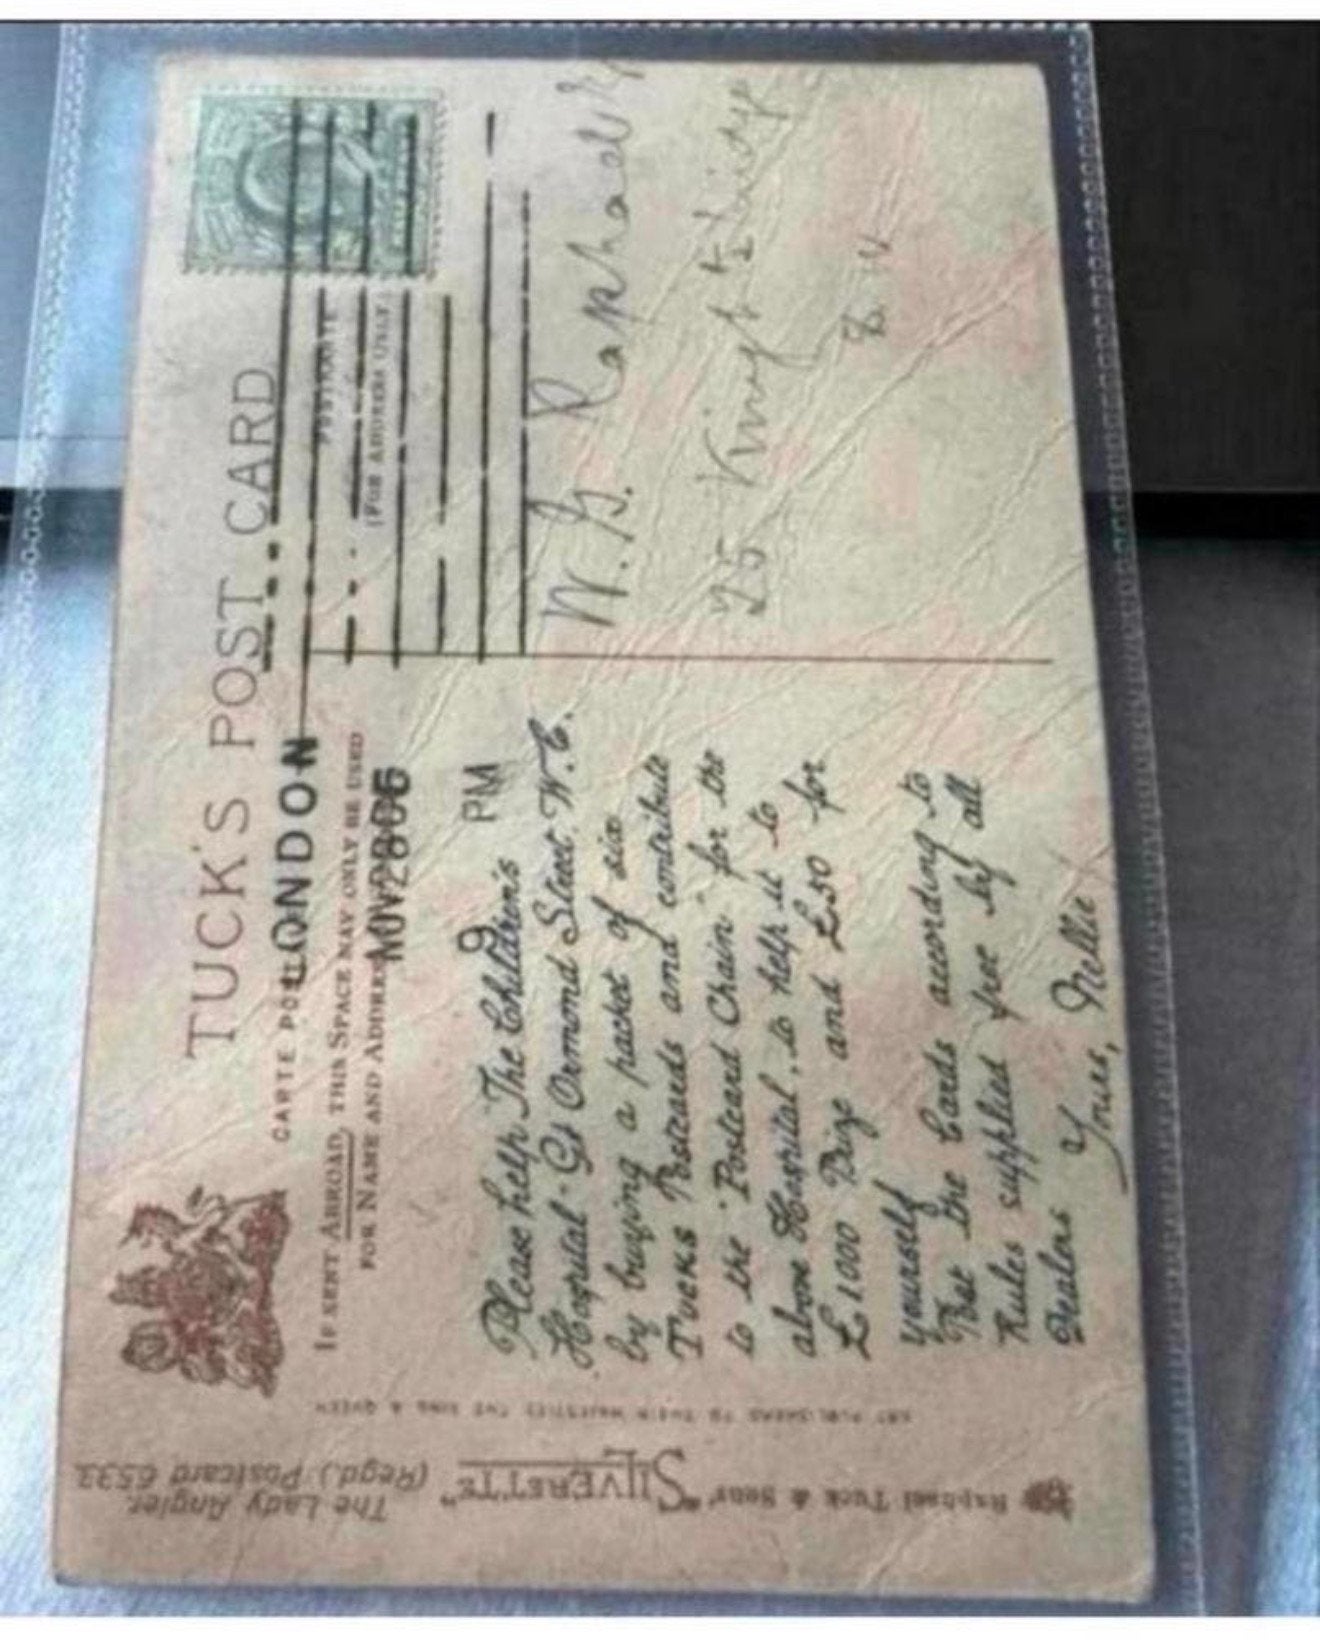 TUCK'S POST CARD
CARTE PO
LONDON
POSTKARTE
IF SENT ABROAD, THIS SPACE MAY ONLY BE USED
FOR NAME AND ADDRE
(FOR ADDRESS ONLY)
NOV 28 06
9 PM
Please help The Children's
Hospital Gt Ormond Street. W.C.
by buying a packet of six
TUCKS Postcards and contribute
to the "Postcard Chain" for the
above Hospital, to help it to
£1000 Prize and £50 for
yourself
Post the Cards according to
Rules supplied free by all
Dealers Yours, Nellie
W. G. Raphael
25 King
ART PUBLISHERS TO THEIR MAJESTIES THE KING & QUEEN
Raphael Tuck & Sons' "SILVERETTE"
The Lady Angler.
(Regd.) Postcard 6533.